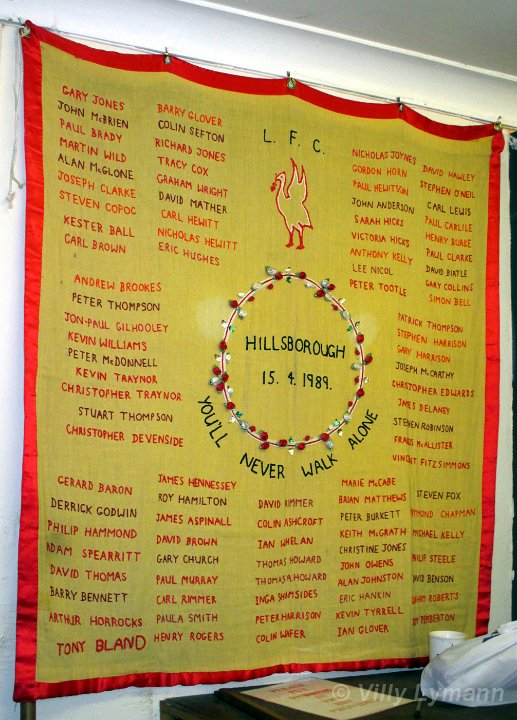 GARY JONES
JOHN McBRIEN
PAUL BRADY
MARTIN WILD
ALAN McGLONE
JOSEPH CLARKE
STEVEN COPOC
KESTER BALL
CARL BROWN
BARRY GLOVER
COLIN SEFTON
RICHARD JONES
TRACY COX
GRAHAM WRIGHT
DAVID MATHER
CARL HEWITT
NICHOLAS HEWITT
ERIC HUGHES
L. F. C.
NICHOLAS JOYNES
GORDON HORN
PAUL HEWITSON
JOHN ANDERSON
SARAH HICKS
VICTORIA HICKS
ANTHONY KELLY
LEE NICOL
PETER TOOTLE
DAVID HAWLEY
STEPHEN O'NEIL
CARL LEWIS
PAUL CARLILE
HENRY BURKE
PAUL CLARKE
DAVID BIRTLE
GARY COLLINS
SIMON BELL
ANDREW BROOKES
PETER THOMPSON
JON-PAUL GILHOOLEY
KEVIN WILLIAMS
PETER McDONNELL
KEVIN TRAYNOR
CHRISTOPHER TRAYNOR
STUART THOMPSON
CHRISTOPHER DEVENSIDE
HILLSBOROUGH
15. 4. 1989.
YOU'LL NEVER WALK ALONE
PATRICK THOMPSON
STEPHEN HARRISON
GARY HARRISON
JOSEPH McCARTHY
CHRISTOPHER EDWARDS
JAMES DELANEY
STEVEN ROBINSON
FRANCIS McALLISTER
VINCENT FITZSIMMONS
GERARD BARON
DERRICK GODWIN
PHILIP HAMMOND
ADAM SPEARRITT
DAVID THOMAS
BARRY BENNETT
ARTHUR HORROCKS
TONY BLAND
JAMES HENNESSEY
ROY HAMILTON
JAMES ASPINALL
DAVID BROWN
GARY CHURCH
PAUL MURRAY
CARL RIMMER
PAULA SMITH
HENRY ROGERS
DAVID RIMMER
COLIN ASHCROFT
IAN WHELAN
THOMAS HOWARD
THOMAS A HOWARD
INGA SHIMSIDES
PETER HARRISON
COLIN WAFER
MARIE McCABE
BRIAN MATTHEWS
PETER BURKETT
KEITH McGRATH
CHRISTINE JONES
JOHN OWENS
ALAN JOHNSTON
ERIC HANKIN
KEVIN TYRRELL
IAN GLOVER
STEVEN FOX
YMOND CHAPMAN
MICHAEL KELLY
HILIP STEELE
AVID BENSON
AHAM ROBERTS
PEMBERTON
© Villy Lymann